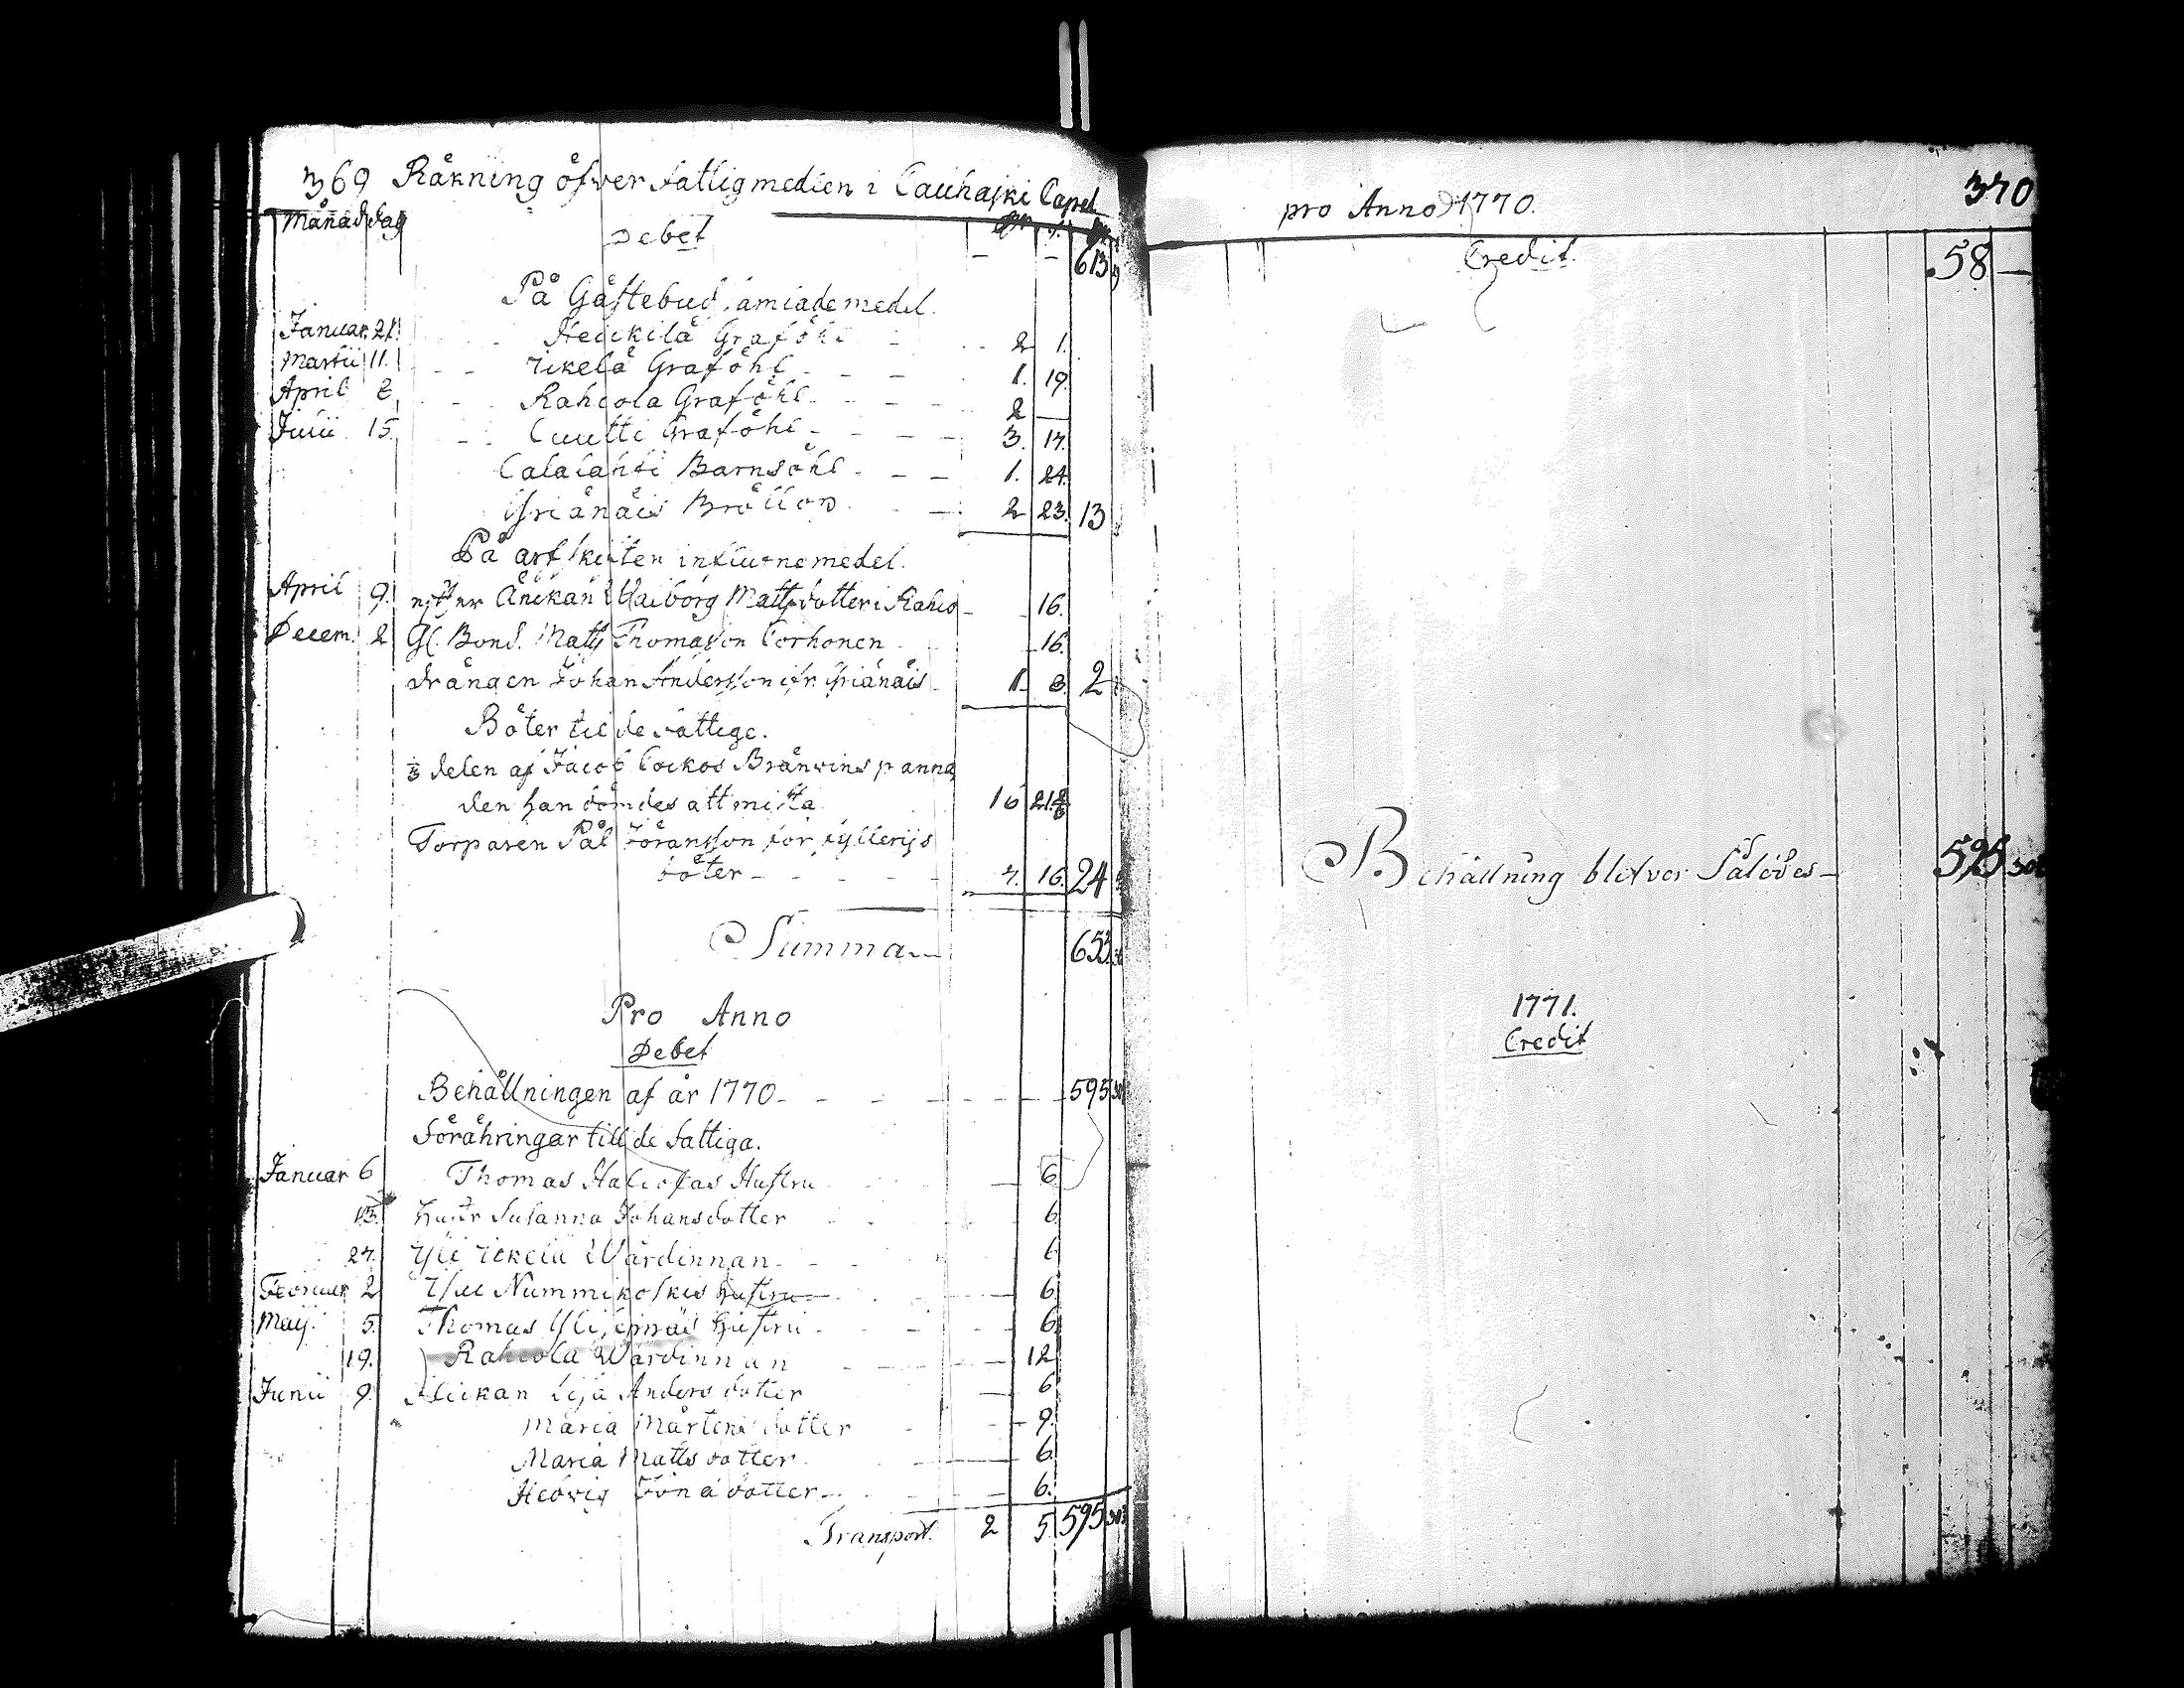 369 Räkning öfver Fattigmedlen i Cauhajki Capel
Månad Dag Debet
— — 613
På Gästebud samlade medel.
Januar. 21. Heickilä Graföhl 2 1.
Martii 11. Ikelä Graföhl 1. 19.
April 8 Rahcola Graföhl 2 —
Julii 15. Cuutti Graföhl 3. 17.
Calalahti Barnsöhl 1. 24.
Yrjänäis Bröllop 2 23. 13
På arfskiften influtne medel.
April 9. efter Änckan Walborg Mattsdotter i Rahco 16.
Decem. 2 Gl. Bond. Matts Thomasson Corhonen 16.
drängen Johan Andersson ifr. Yrjänäis 1. 8. 2
Böter til de Fattige.
1/3 delen af Jacob Cockos Bränwins panna
den han dömdes att mista 16 21 2/3
Torparen Pål Jöransson för fylleriis
böter 7. 16. 24
Summa 653
Pro Anno
Debet
Behållningen af år 1770 595 30
Förähringar till de Fattiga.
Januar 6 Thomas Hustru 6
13. Hustr Susanna Johansdotter 6
27. Yli Ickelä Wärdinnan 6
Februar 2 Nummikoskis Hustru 6.
Maij. 5. Thomas Hustru 6
19. Rahcola Wärdinnan 12
Junii 9. Pickan Lisa Anders dotter 6
Maria Mårtens dotter 9.
Maria Matts dotter 6.
Hedvig dotter 6.
Transport. 2 5 595 30
pro Anno 1770. 370
Credit. 58 —
Behållning blifver Således 595 30
1771.
Credit